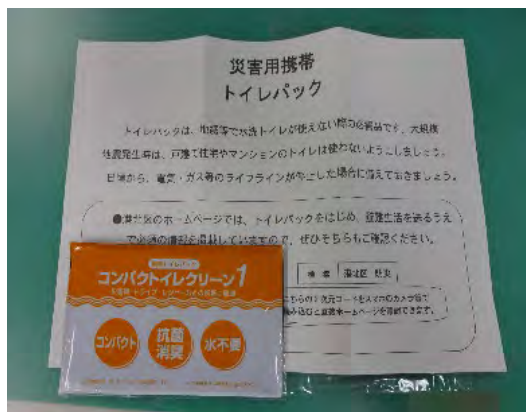 災害用携帯
トイレパック
トイレパックは、地震等で水洗トイレが使えない際の必需品です。大規模
地震発生時は、戸建て住宅やマンションのトイレは使わないようにしましょう。
日頃から、電気・ガス等のライフラインが停止した場合に備えておきましょう。
●港北区のホームページでは、トイレパックをはじめ、避難生活を送るうえ
で必須の情報を掲載していますので、ぜひそちらもご確認ください。
検索 港北区 防災
こちらの二次元コードをスマホのカメラ等で
読み込むと直接ホームページを確認できます。
コンパクトイレクリーン1
コンパクト
抗菌
消臭
水不要